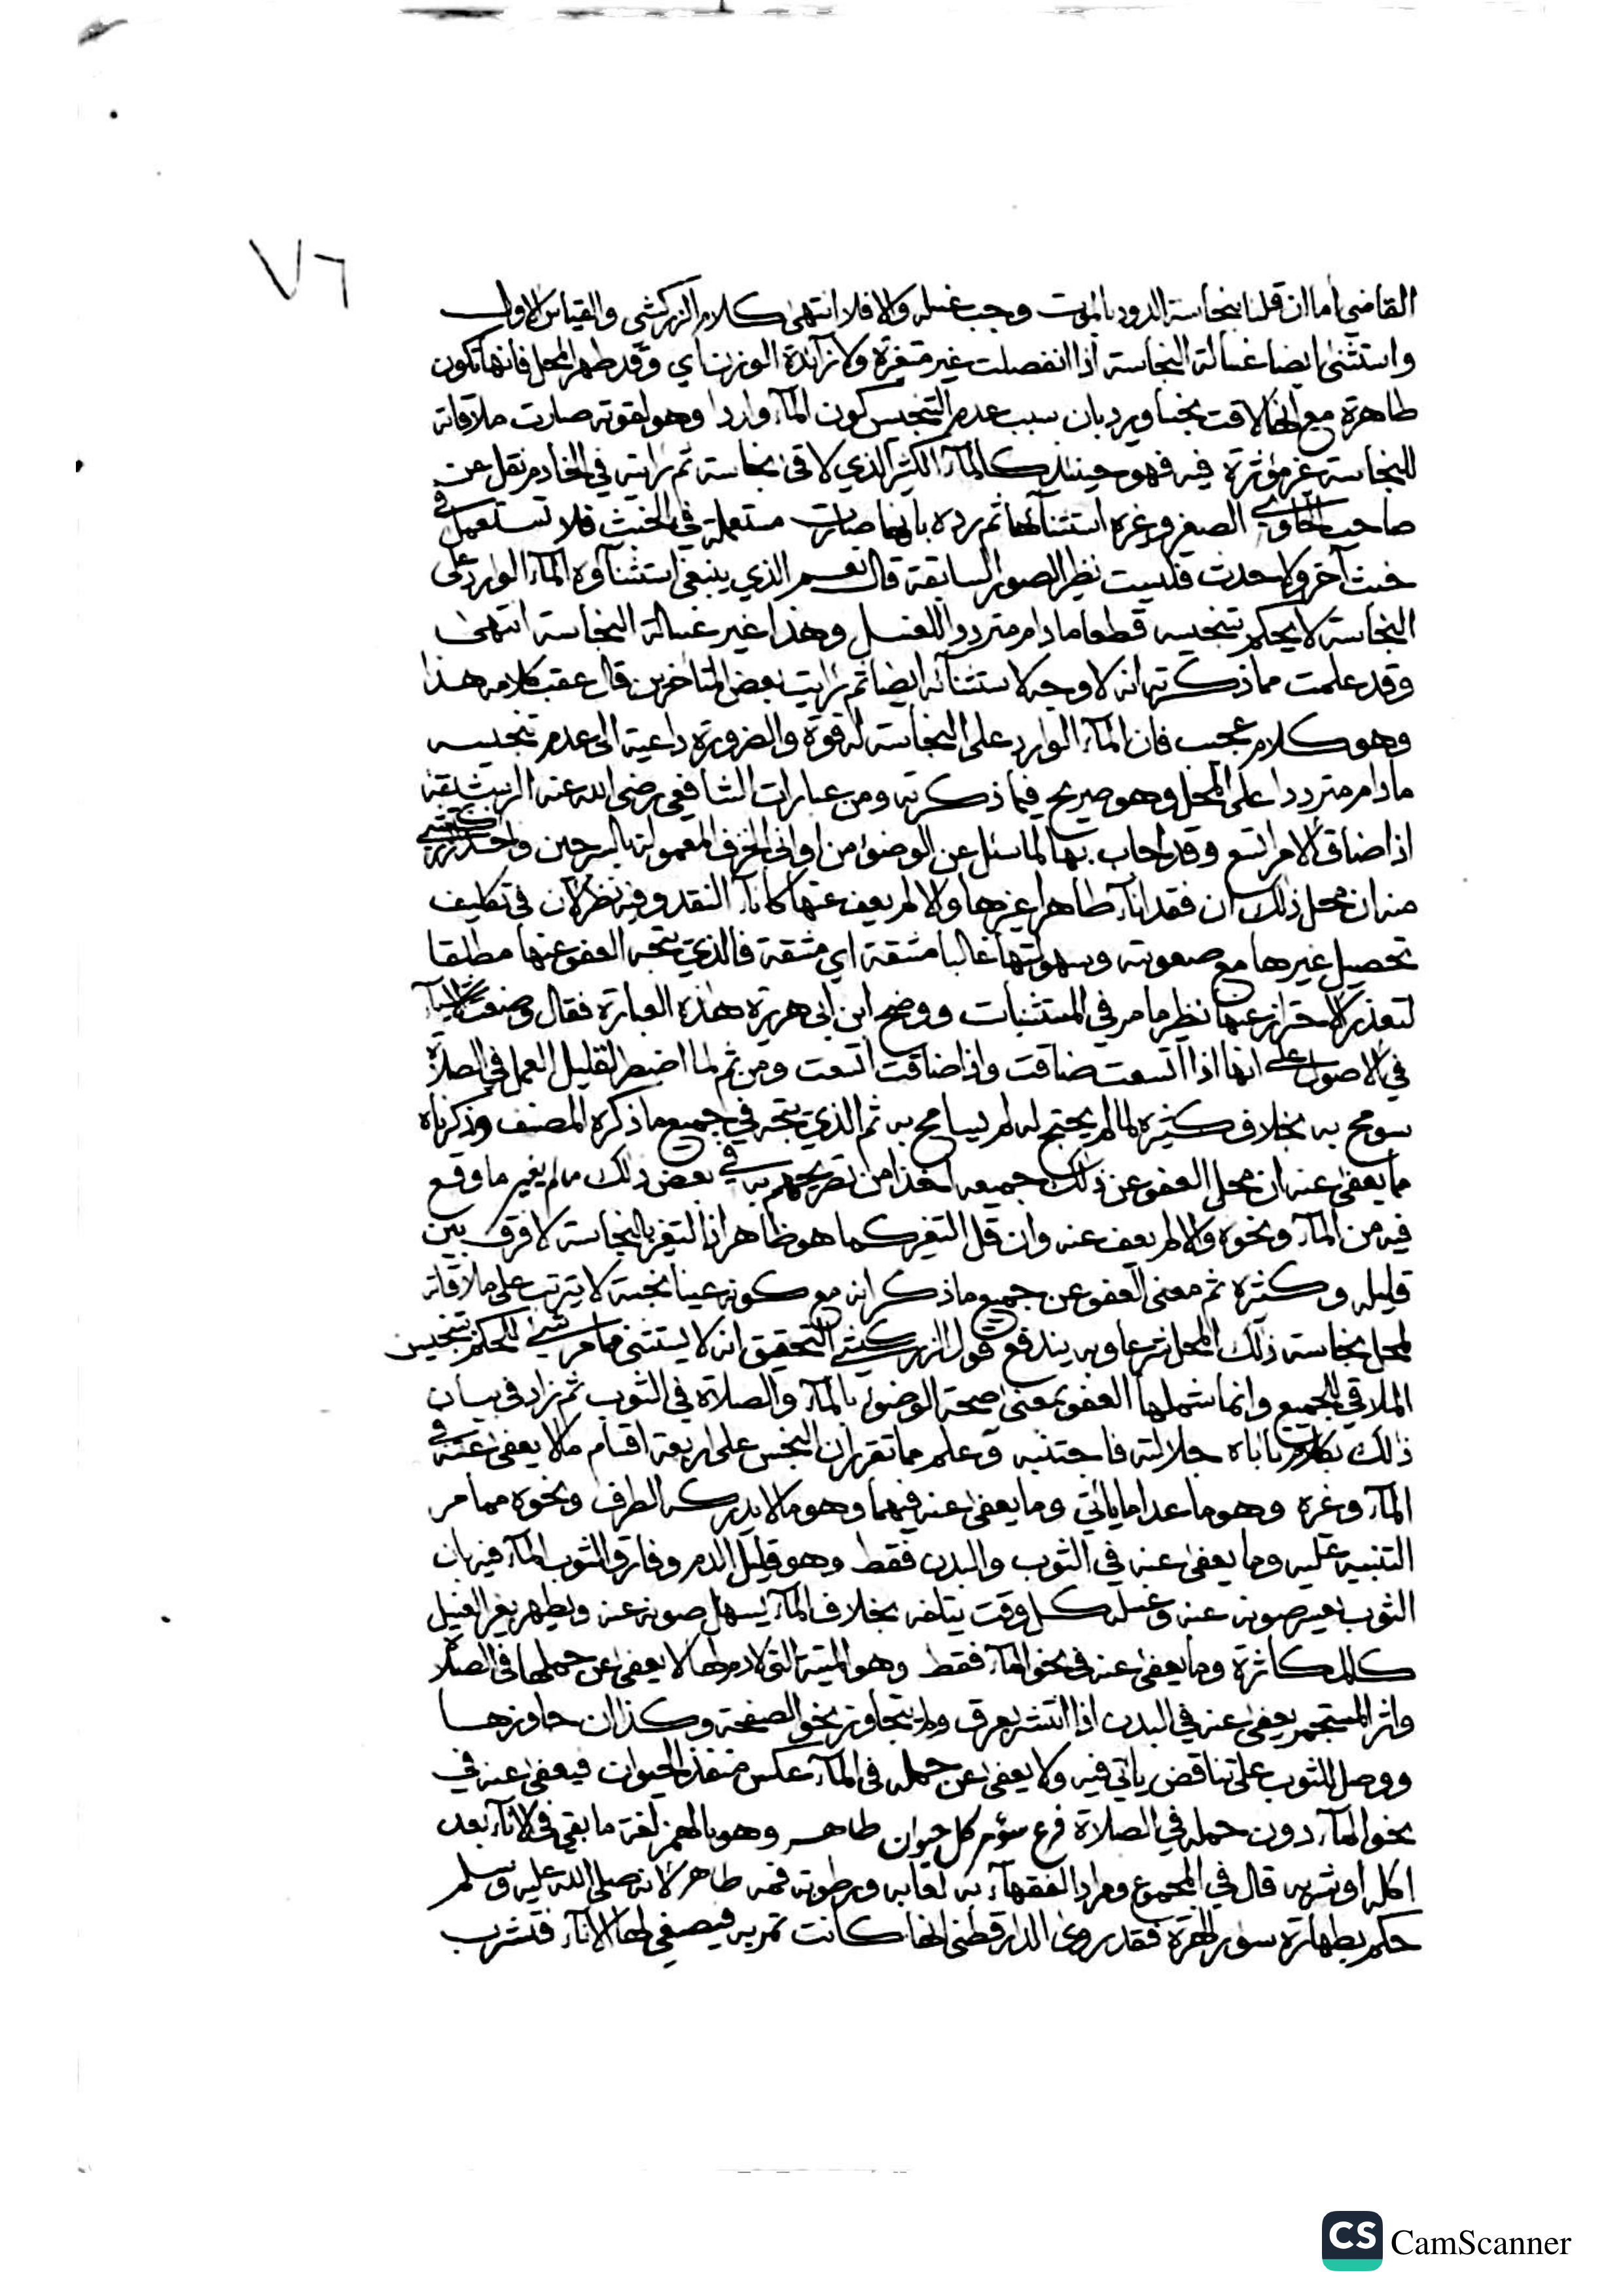 ٧٦
القاضي اما ان قلنا بنجاسة الدود بالموت وجب غسله والا فلا انتهى كلام الزركشي والقياس الاول
واستثنى ايضا غسالة النجاسة اذا انفصلت غير متغيرة ولا زائدة الوزن اي وقد طهر المحل فانها تكون
طاهرة مع انها لاقت نجسا ويرد بان سبب عدم التنجس كون الماء واردا وهو لقوته صارت ملاقاته
للنجاسة غير مؤثرة فيه فهو حينئذ كالماء الكثير الذي لاقى نجاسة ثم رايته في الخادم نقل عن
صاحب الحاوي الصغير وغيره استثناءها ثم رده بانها صارت مستعملة في الخبث فلا تستعمل في
خبث آخر ولا حدث فليست نظير الصور السابقة قال نعم الذي ينبغي استثناؤه الماء الوارد على
النجاسة لا يحكم بتنجيسه قطعا ما دام مترددا للغسل وهذا غير غسالة النجاسة انتهى
وقد علمت مما ذكرته انه لا وجه لاستثنائه ايضا ثم رايت بعض المتاخرين قال عقب كلامه هذا
وهو كلام عجب فان الماء الوارد على النجاسة له قوة والضرورة داعية الى عدم تنجيسه
ما دام مترددا على المحل وهو صريح فيما ذكرته ومن عبارات الشافعي رضي الله عنه الرشيقة
اذا ضاق الامر اتسع وقد اجاب بها لما سئل عن الوضوء من اواني الخزف المعمولة بالسرجين واخذ الزركشي
منه ان محل ذلك ان فقد اناء طاهرا غيرها والا لم يعف عنها كاناء النقد وفيه نظر لان في تكليف
تحصيل غيرها مع صعوبته وسهولتها غالبا مشقة اي مشقة فالذي يتجه العفو عنها مطلقا
لتعذر الاحتراز عنها نظير ما مر في المستثنيات ووضح ابن ابي هريرة هذه العبارة فقال وضعت الاشياء
في الاصول على انها اذا اتسعت ضاقت واذا ضاقت اتسعت ومن ثم لما اضطر لقليل العمل في الصلاة
سومح به بخلاف كثيره لما لم يحتج له لم يسامح به ثم الذي يتجه في جميع ما ذكره المصنف وذكرناه
مما يعفى عنه ان محل العفو عن ذلك جميعه اخذا من تصريحهم به في بعض ذلك ما لم يغير ما وقع
فيه من الماء ونحوه والا لم يعف عنه وان قل التغير كما هو ظاهر اذ التغير بالنجاسة لا فرق بين
قليله وكثيره ثم معنى العفو عن جميع ما ذكر انه مع كونه عينا نجسة لا يترتب على ملاقاته
لمحل نجاسة ذلك المحل شرعا وبه يندفع قول الزركشي التحقيق انه لا يستثنى مما مر شيء للحكم بتنجيس
الملاقي للجميع وانما شملها العفو بمعنى صحة الوضوء بالماء والصلاة في الثوب ثم زاد في بيان
ذلك بكلام تاباه جلالته فاجتنبه وعلم مما تقرر ان النجس على اربعة اقسام ما لا يعفى عنه في
الماء وغيره وهو ما عدا ما ياتي وما يعفى عنه فيهما وهو ما لا يدركه الطرف ونحوه مما مر
التنبيه عليه وما يعفى عنه في الثوب والبدن فقط وهو قليل الدم وفارق الثوب الماء فيه بان
الثوب يعسر صونه عنه وغسله كل وقت يتلفه بخلاف الماء يسهل صونه عنه ويطهر بغير الغسل
كالمكاثرة وما يعفى عنه في نحو الماء فقط وهو الميتة التي لا دم لها لا يعفى عن حملها في الصلاة
واثر المستجمر يعفى عنه في البدن اذا انتشر بعرق ولم يتجاوز نحو الصفحة وكذا ان جاوزها
ووصل للثوب على تناقض ياتي فيه ولا يعفى عن حمله في الماء عكس منفذ الحيوان فيعفى عنه في
نحو الماء دون حمله في الصلاة فرع سؤر كل حيوان طاهر وهو بالهمز لغة ما بقي في الاناء بعد
اكله او شربه قال في المجموع ومراد الفقهاء به لعابه ورطوبة فمه طاهر لانه صلى الله عليه وسلم
حكم بطهارة سؤر الهرة فقد روى الدارقطني انها كانت تمر به فيصغي لها الاناء فتشرب
CS CamScanner